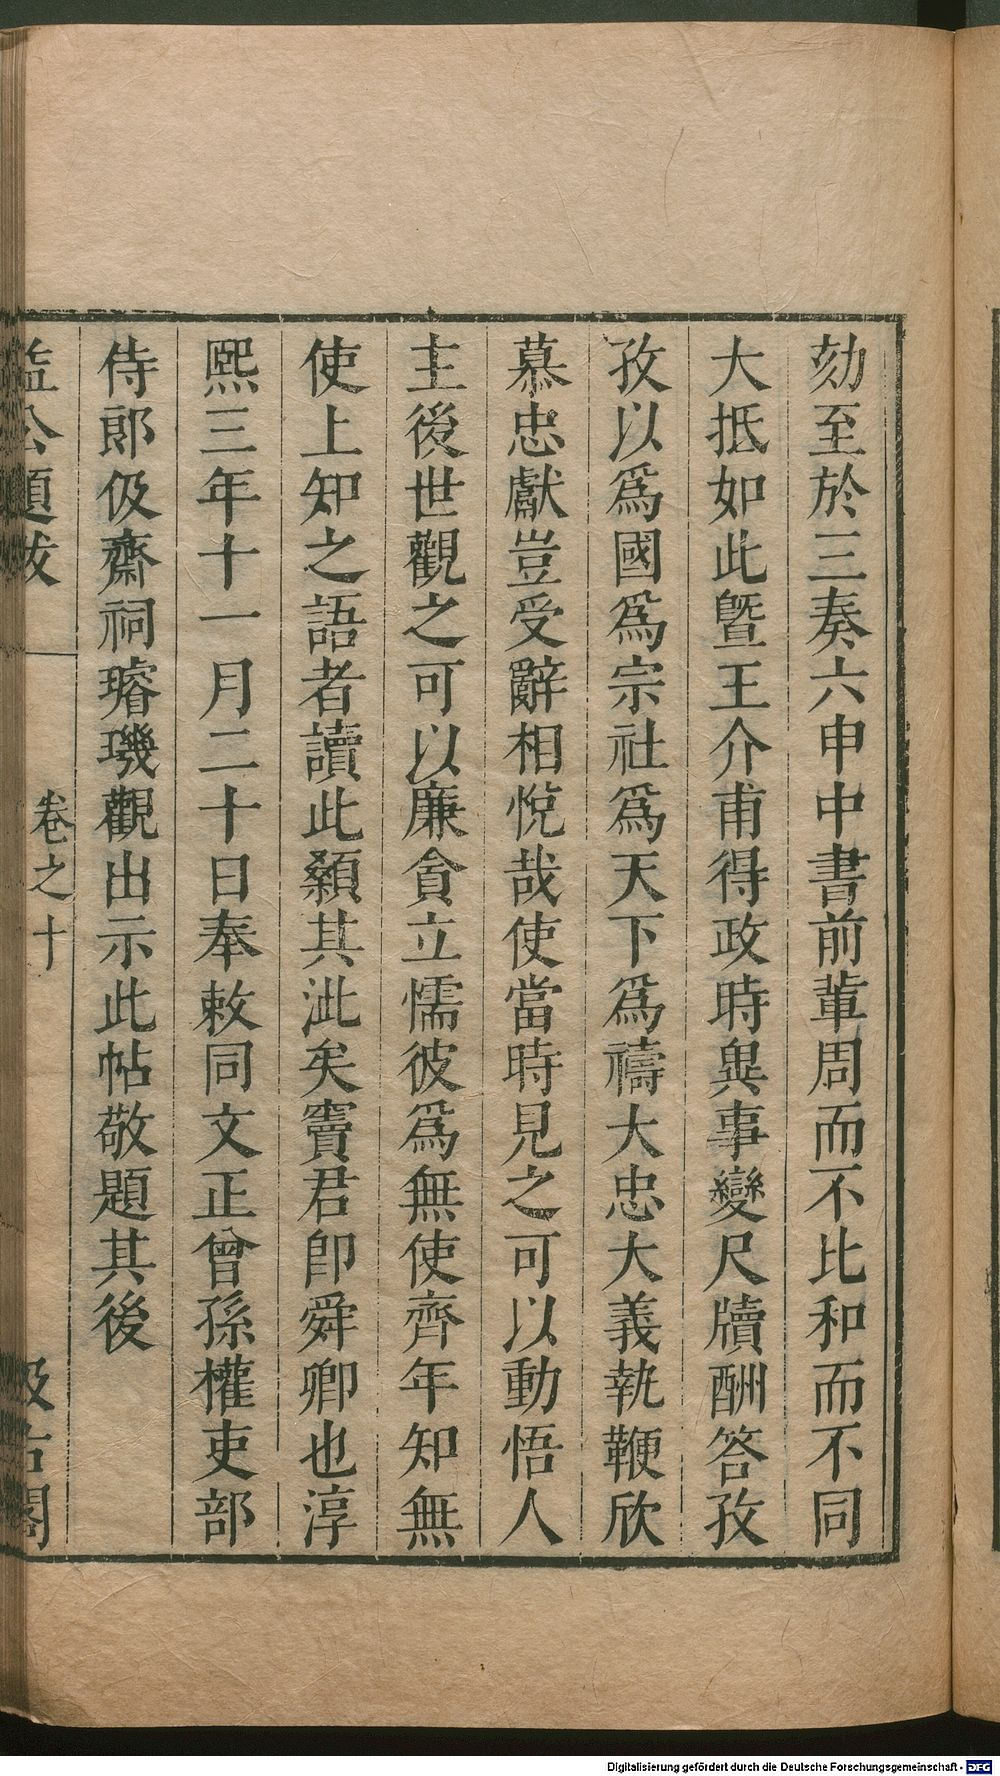 劾至於三奏六申中書前輩周而不比和而不同
大抵如此曁王介甫得政時異事變尺牘酬答孜
孜以爲國爲宗社爲天下爲禱大忠大義執鞭欣
慕忠獻豈受辭相悅哉使當時見之可以動悟人
主後世觀之可以廉貪立懦彼爲無使齊年知無
使上知之語者讀此顙其泚矣竇君卽舜卿也淳
熙三年十一月二十日奉敕同文正曾孫權吏部
侍郎伋齋祠璿璣觀出示此帖敬題其後
益公題跋
卷之十
汲古閣
Digitalisierung gefördert durch die Deutsche Forschungsgemeinschaft - DFG